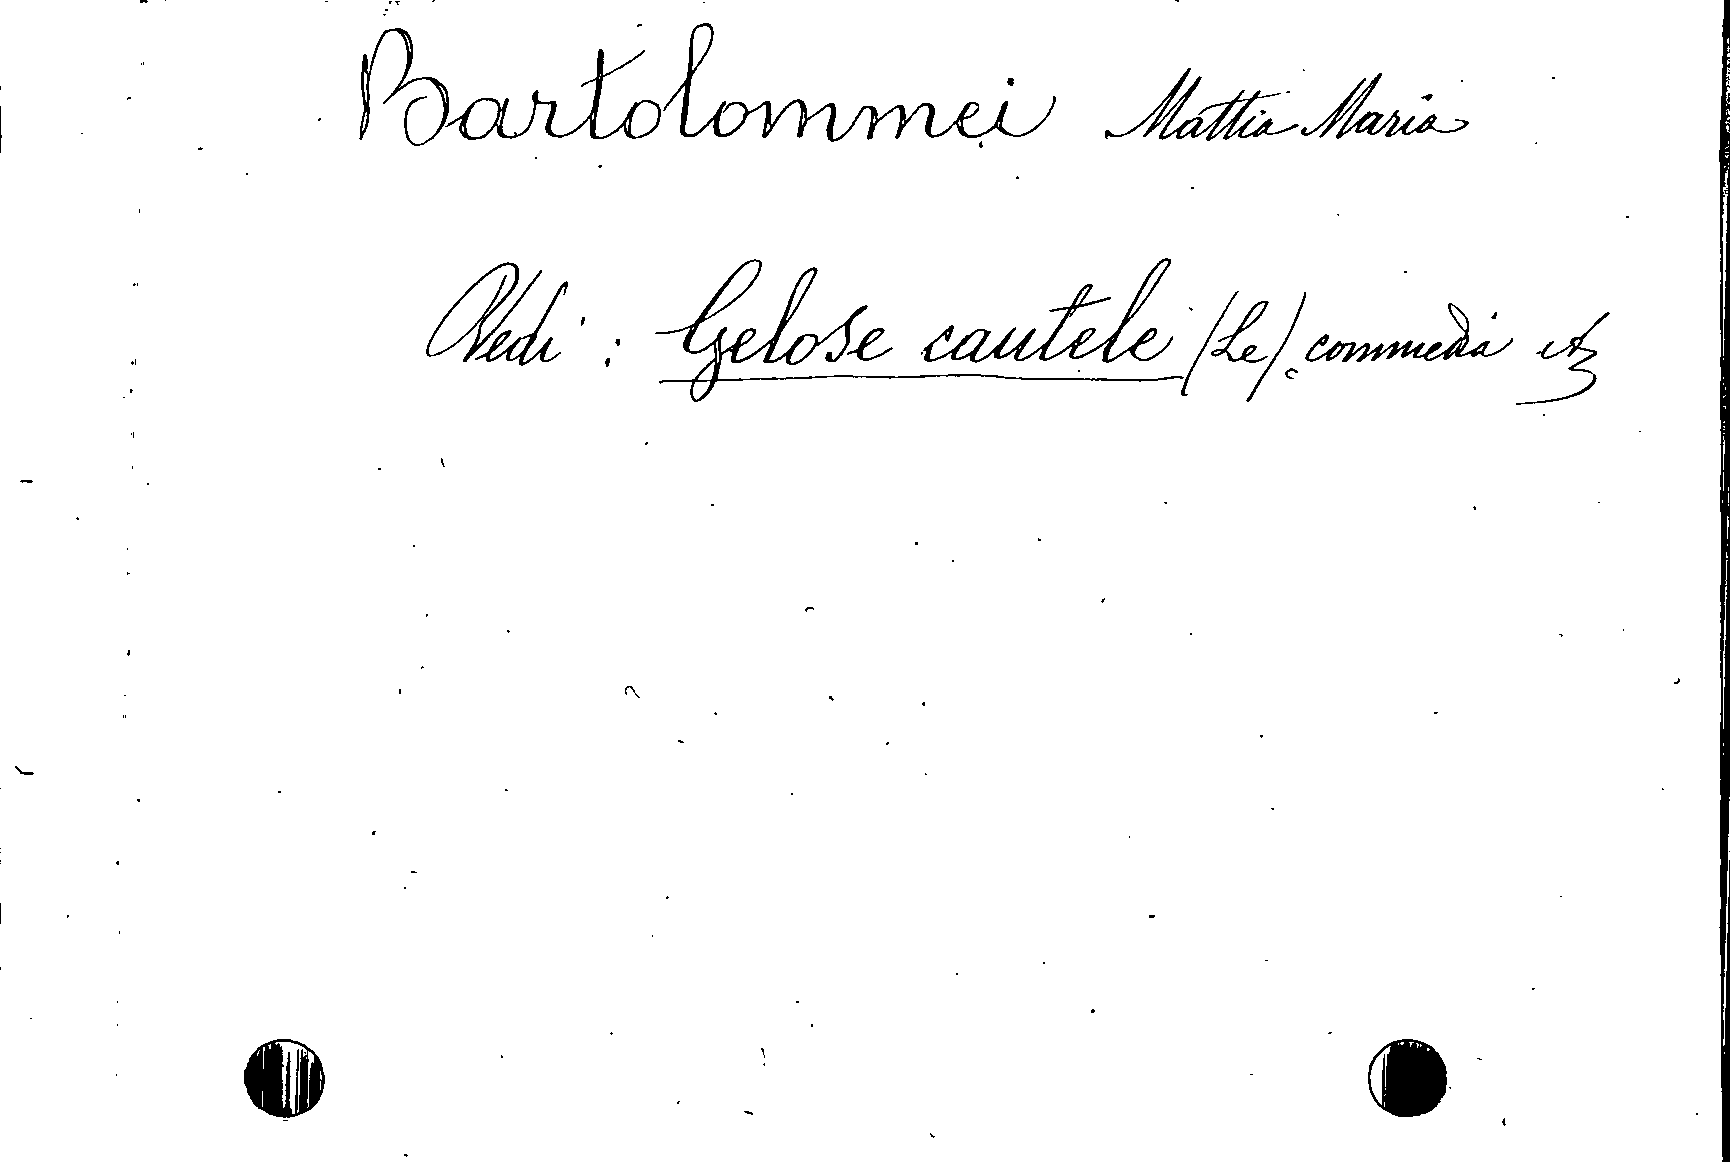 Bartolommei Mattia Maria
Vedi : Gelose cautele (Le). commedia etc